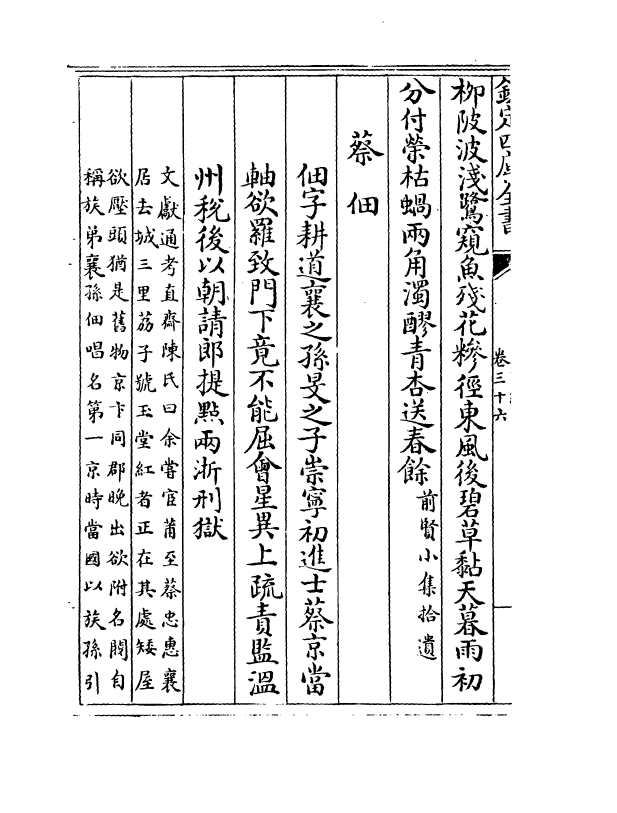 欽定四庫全書
卷三十六
柳陂波淺鷺窺魚殘花糝徑東風後碧草黏天暮雨初
分付榮枯蝸兩角濁醪青杏送春餘前賢小集拾遺
蔡佃
佃字耕道襄之孫旻之子崇寧初進士蔡京當
軸欲羅致門下竟不能屈會星異上疏責監溫
州稅後以朝請郎提點兩浙刑獄
文獻通考直齋陳氏曰余嘗官莆至蔡忠惠襄
居去城三里荔子號玉堂紅者正在其處矮屋
欲壓頭猶是舊物京卞同郡晚出欲附名閥自
稱族弟襄孫佃唱名第一京時當國以族孫引